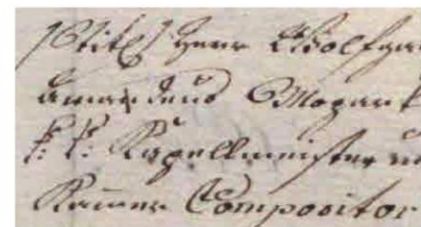 (Titl) Herr Wolfga
Amandeus Mozart
k: k: Kapellmeister u
Kammer Compositor